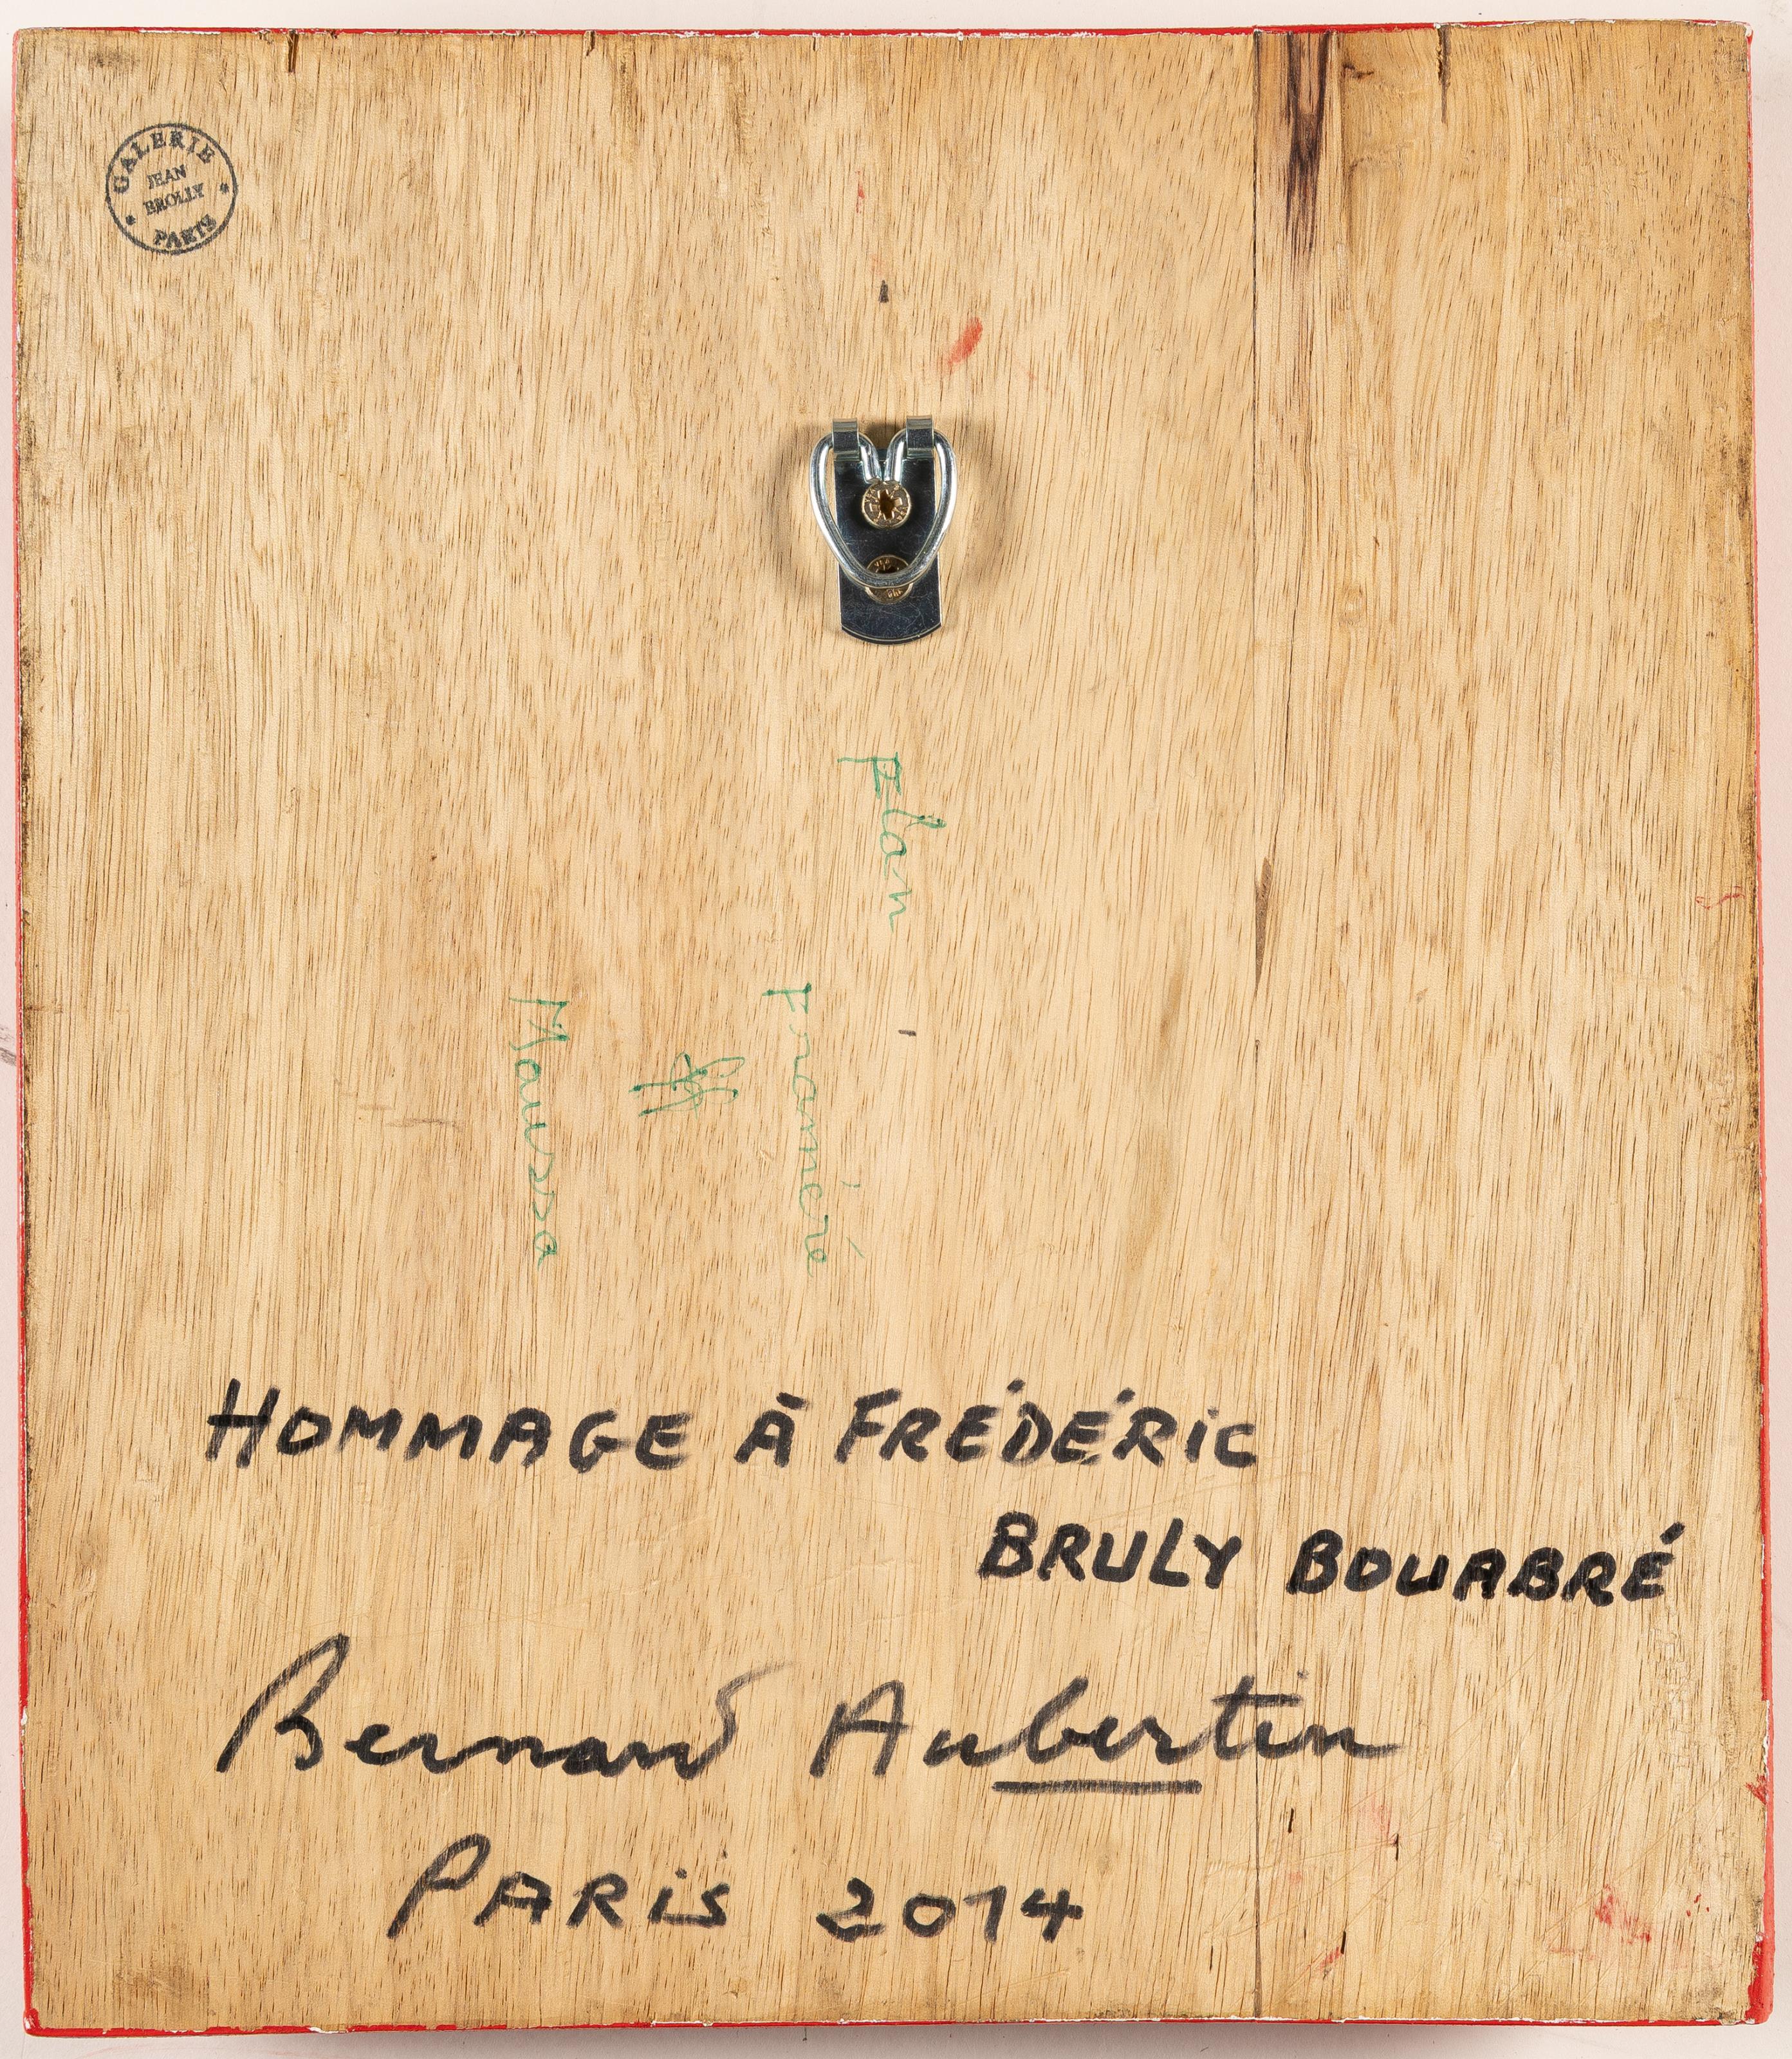 GALERIE
JEAN
BROLLY
PARIS
Flan
Framiré
Moussa
HOMMAGE À FRÉDÉRIC
BRULY BOUABRÉ
Bernard Aubertin
PARIS 2014